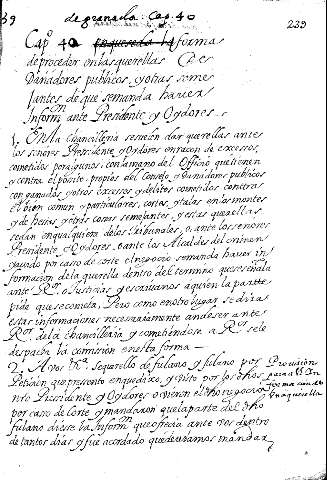 39 de granada. Cap. 40 239
Capº 40 en que se da la forma
de proceder en las querellas de
Dañadores publicos, y otras seme
Jantes en que se manda haver
Inform ante Presidente y Oydores
1. En la Chancilleria se suelen dar querellas ante
los señores Presidente, y Oydores en razon de excessos,
cometidos por algunos con la mano del Officio que tienen
y contra el posito, propios del Consejo, y Dañadores publicos
con ganados, y otros excessos y delitos cometidos contra
el bien comun, y particulares, cortes, y talas en los montes
y dehesas, y otras cosas semejantes, y estas querellas
se dan en qualquiera de los Tribunales, o ante los señores
Presidente, y Oydores, o ante los Alcaldes del crimen
y quando por caso de corte el negocio se manda hacer in
formacion de la querella dentro del termino que se señala
ante Rr. o Justicias, y escrivanos a quien la parte
pide que se cometa, Pero como en otro lugar se dira
estas informaciones necesariamente an de ser ante
Rr. de la chancilleria y cometiendose a Rr. se le
despacha la comision en esta forma —
2. A vos Rr. se querello de fulano y fulano por
Peticion que presento en que dixo, y visto por los dhos
nto Presidente y Oydores ovieron el dho negocio
por caso de Corte y mandaron que la parte del dho
fulano diesse la Inform que ofrecia ante vos dentro
de tantos dias y fue acordado que deviamos mandar
Provision
para
forma